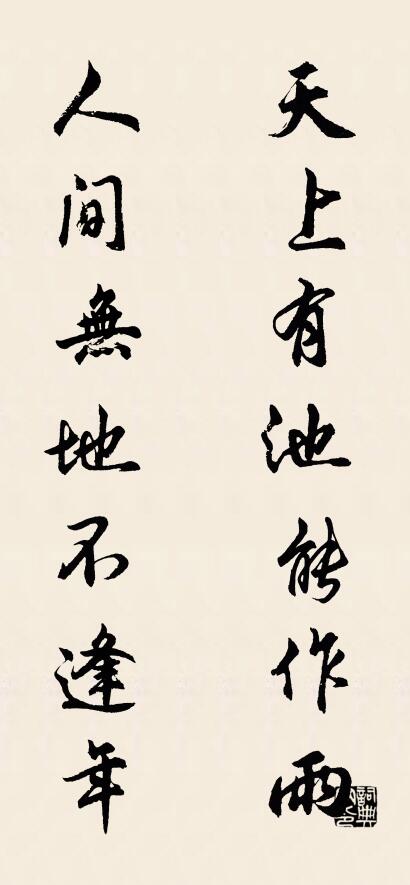 天上有池能作雨
人間無地不逢年